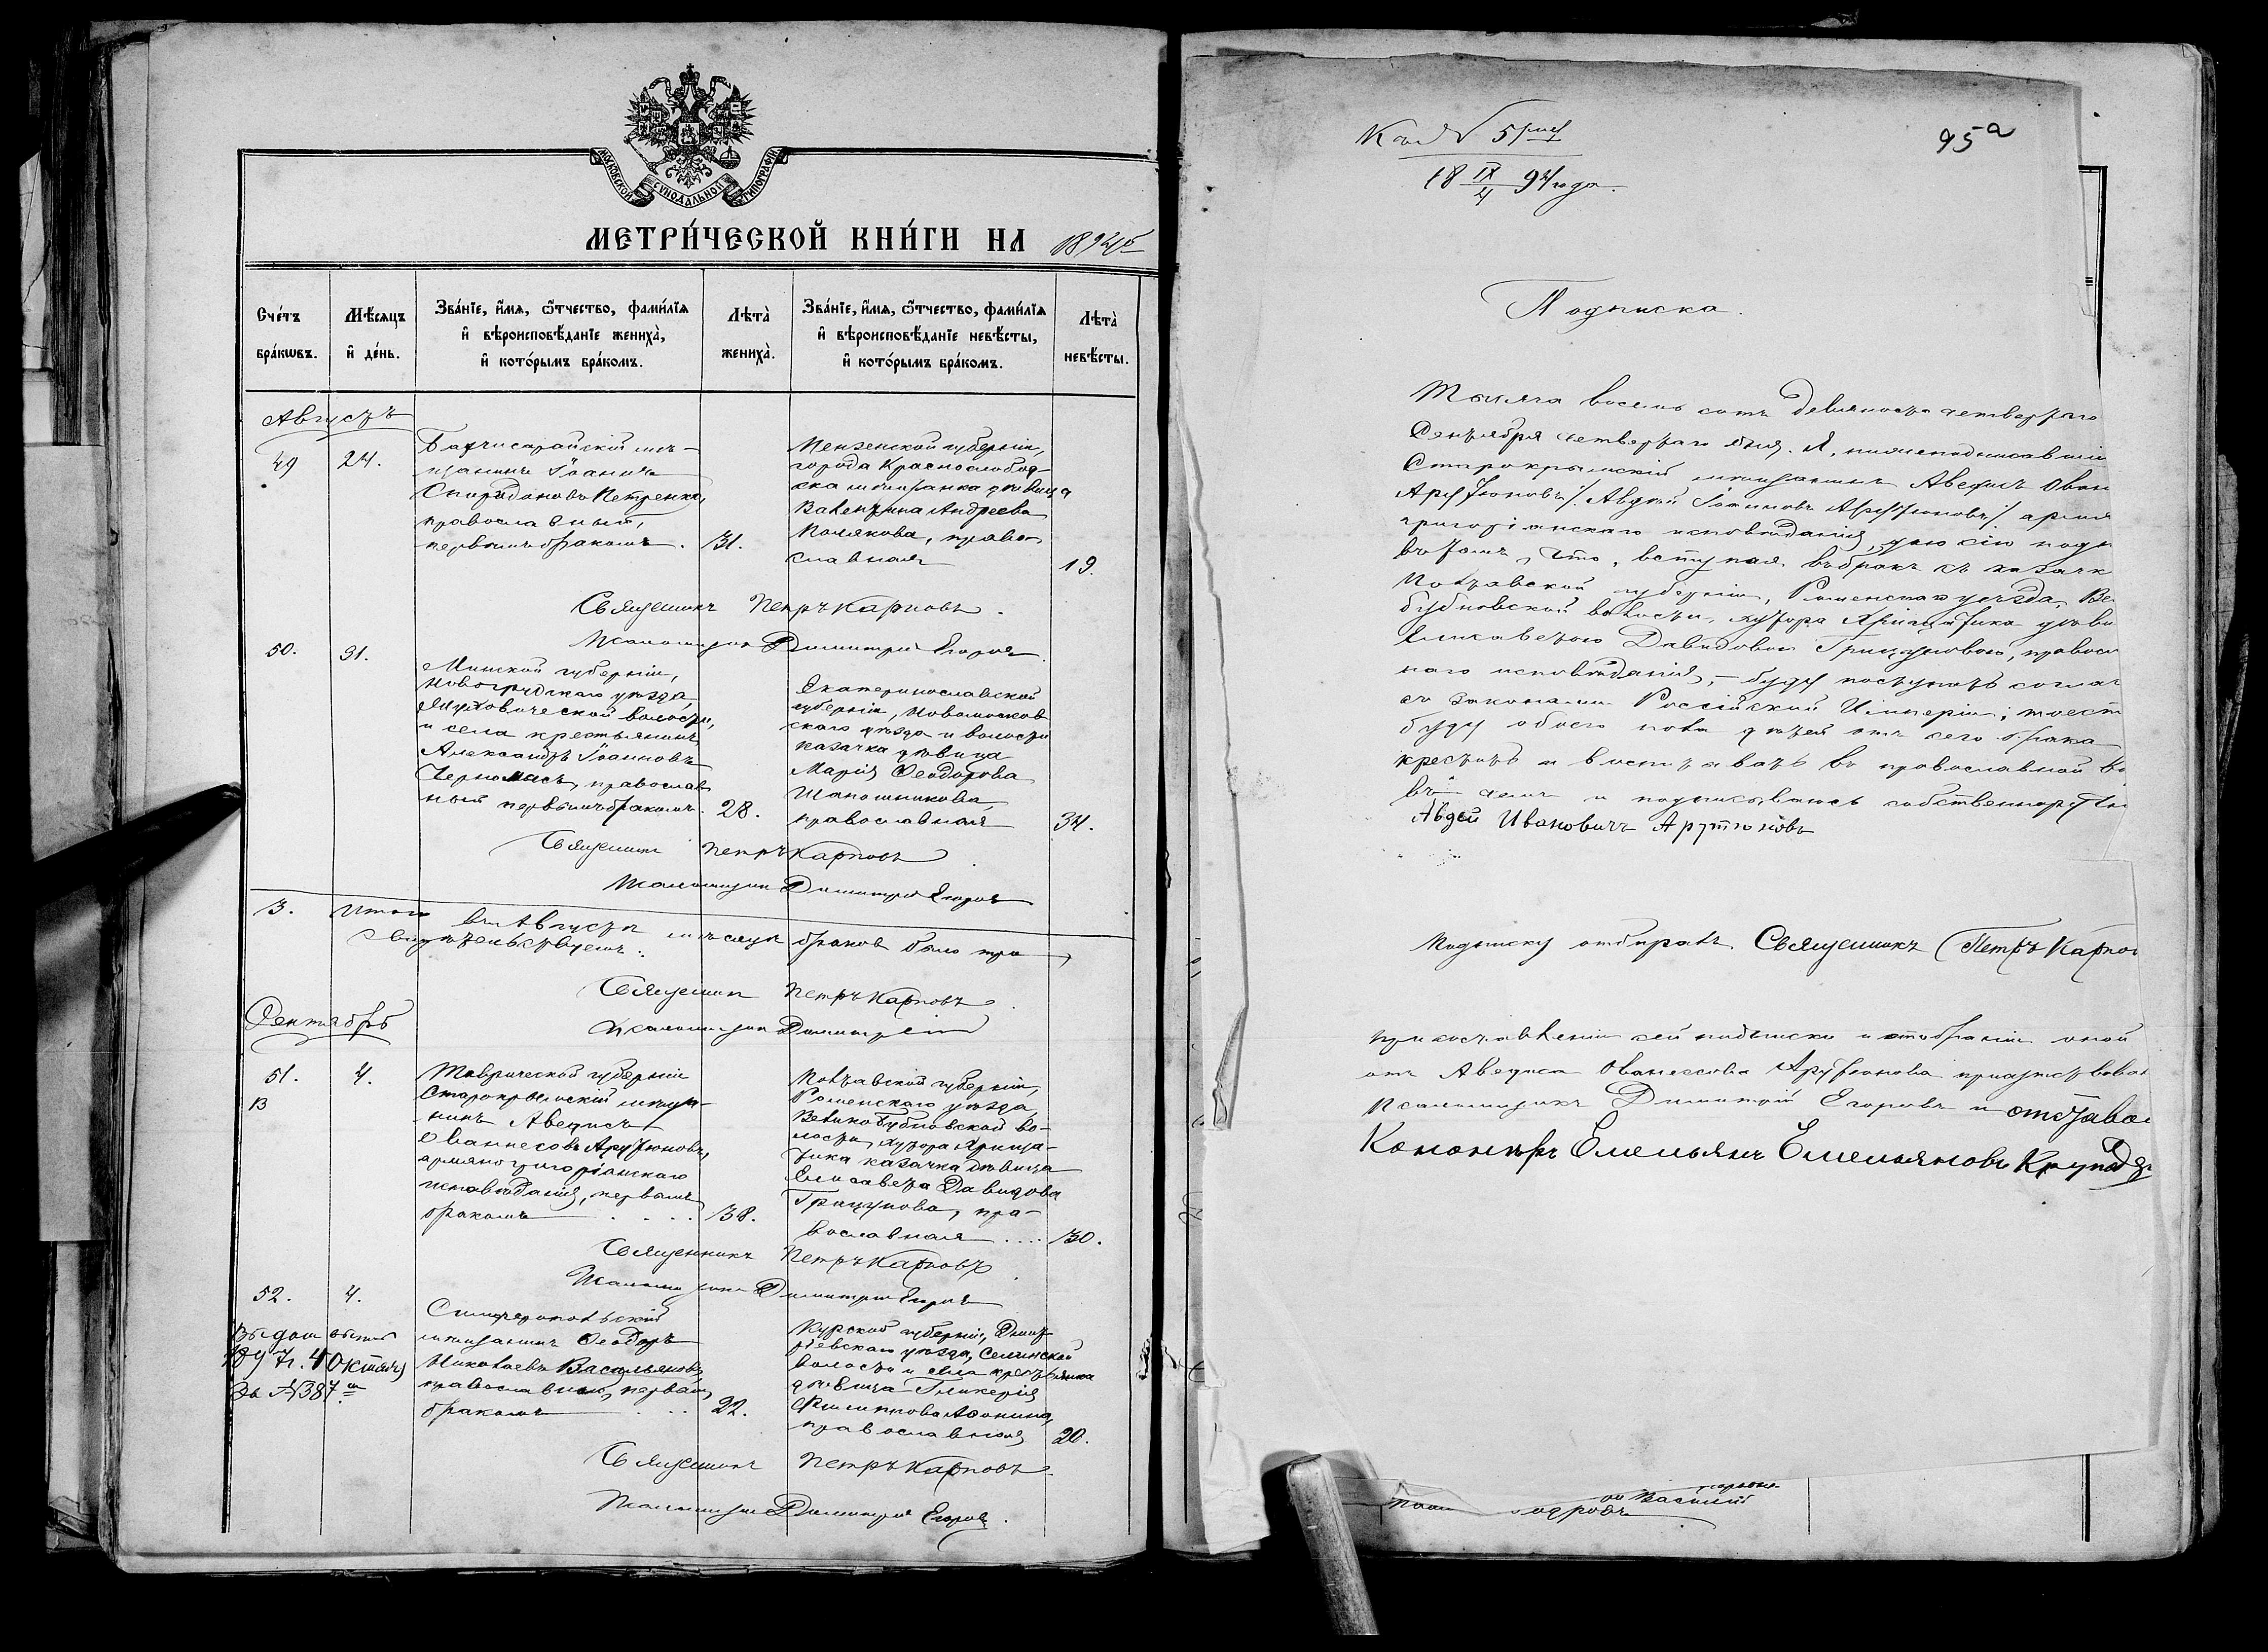 МОСКОВСКОЙ СѴНОДАЛЬНОЙ ТИПОГРАФІИ
МЕТРИ́ЧЕСКОЙ КНИ́ГИ НА 1894 г.
Сче́тъ бра́кѡвъ.
Мѣ́сяцъ и҆ де́нь.
Зва́нїе, и҆́мѧ, ѻ҆́тчество, фами́лїѧ и҆ вѣроисповѣ́данїе жениха̀, и҆ кото́рымъ бра́комъ.
Лѣта̀ жениха̀.
Зва́нїе, и҆́мѧ, ѻ҆́тчество, фами́лїѧ и҆ вѣроисповѣ́данїе невѣ́сты, и҆ кото́рымъ бра́комъ.
Лѣта̀ невѣ́сты.
Августъ
49
24.
Бахчисарайскій мѣ-
щанинъ Іоаннъ
Спиридоновъ Петренко,
православный,
первымъ бракомъ.
31.
Пензенской губерніи,
города Краснослобод-
ска мѣщанка дѣвица
Валентина Андреева
Полякова, право-
славная
19.
Священникъ Петръ Карповъ.
Псаломщикъ Димитрій Егоровъ.
50.
31.
Минской губерніи,
Новогрудскаго уѣзда,
волости,
и села крестьянинъ
Александръ Іоанновъ
православ
ный первымъ бракомъ.
28.
Екатеринославской
губерніи, Новомосков
скаго уѣзда и волости
казачка дѣвица
Марія Феодорова
Шапошникова,
православная
34.
Священникъ Петръ Карповъ
Псаломщикъ Димитрій Егоровъ
3. Итого въ Августѣ мѣсяцѣ браковъ было три
свидѣтельствуемъ:
Священникъ Петръ Карповъ.
Псаломщикъ Димитрій
Сентябрь
51.
4.
Таврической губерніи
Старокрымскій мѣща-
нинъ Аведисъ
Ованнесовъ Арутюновъ,
армяногригоріанскаго
исповѣданія, первымъ
бракомъ
38.
Полтавской губерніи,
Роменскаго уѣзда,
Великобубновской во-
лости, хутора
казачка дѣвица
Елисавета Давидова
Грицунова, пра-
вославная
30.
Священникъ Петръ Карповъ
Псаломщикъ Димитрій Егоровъ
52.
4.
Выдан выпись
Октября
За №387
Симферопольскій
мѣщанинъ Феодоръ
Николаевъ Васильяновъ,
православный, первымъ
бракомъ
22.
Курской губерніи, Дмит
ріевскаго уѣзда, Селинской
волости и села крестьянка
дѣвица Гликерія
Филиппова Афонина,
православная
20.
Священникъ Петръ Карповъ.
Псаломщикъ Димитрій Егоровъ.
95а
Къ № 51
18 IX/4 94 года.
Подписка.
Тысяча восемь сотъ девяносто четвертаго
Сентября четвертаго дня. Я, нижеподписавшій
Старокрымскій мѣщанинъ Аведисъ Ован
Арутюновъ /Авдѣй Іоанновъ Арутюновъ/ армя
григоріанскаго исповѣданія, даю сію подп
въ томъ, что, вступая въ бракъ съ казачк
Полтавской губерніи, Роменскаго уѣзда, Ве
бубновской волости, хутора дѣви
Елисаветою Давидовою Грицуновою, правосл
наго исповѣданія, - буду поступать соглас
съ законами Россійской Имперіи; тоест
буду обоего пола дѣтей отъ сего брака
крестить и воспитывать въ православной вѣ
въ чемъ и подписываюсь собственноручн
Авдей Ивановичъ Арутюновъ
Подписку отбиралъ Священникъ Петръ Карпов
При составленіи сей подписки и отобраніи оной
отъ Аведиса Ованесова Арутюнова присутствовал
Псаломщикъ Димитрій Егоровъ и отстав
Канониръ Емельянъ Емельяновъ
Василій